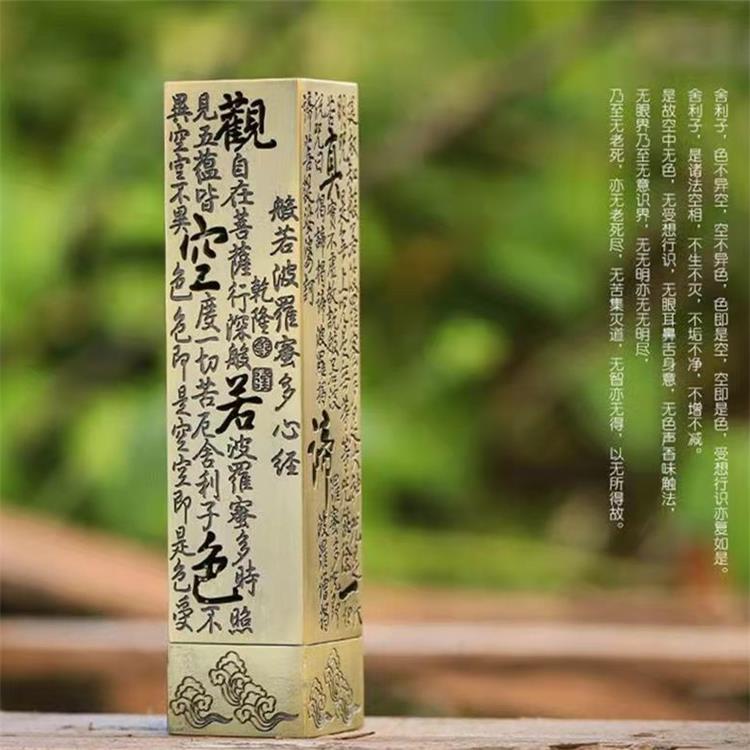 般若波羅蜜多心經
乾隆
觀自在菩薩行深般若波羅蜜多時照
見五蘊皆空度一切苦厄舍利子色不
異空空不異色色即是空空即是色受
真實不虛故說般若波羅蜜多咒即
說咒曰揭諦揭諦波羅揭諦波羅僧揭
諦菩提薩婆訶
舍利子，色不异空，空不异色，色即是空，空即是色，受想行识亦复如是。
舍利子，是诸法空相，不生不灭，不垢不净，不增不减。
是故空中无色，无受想行识，无眼耳鼻舌身意，无色声香味触法，
无眼界乃至无意识界，无无明亦无无明尽，
乃至无老死，亦无老死尽，无苦集灭道，无智亦无得，以无所得故。